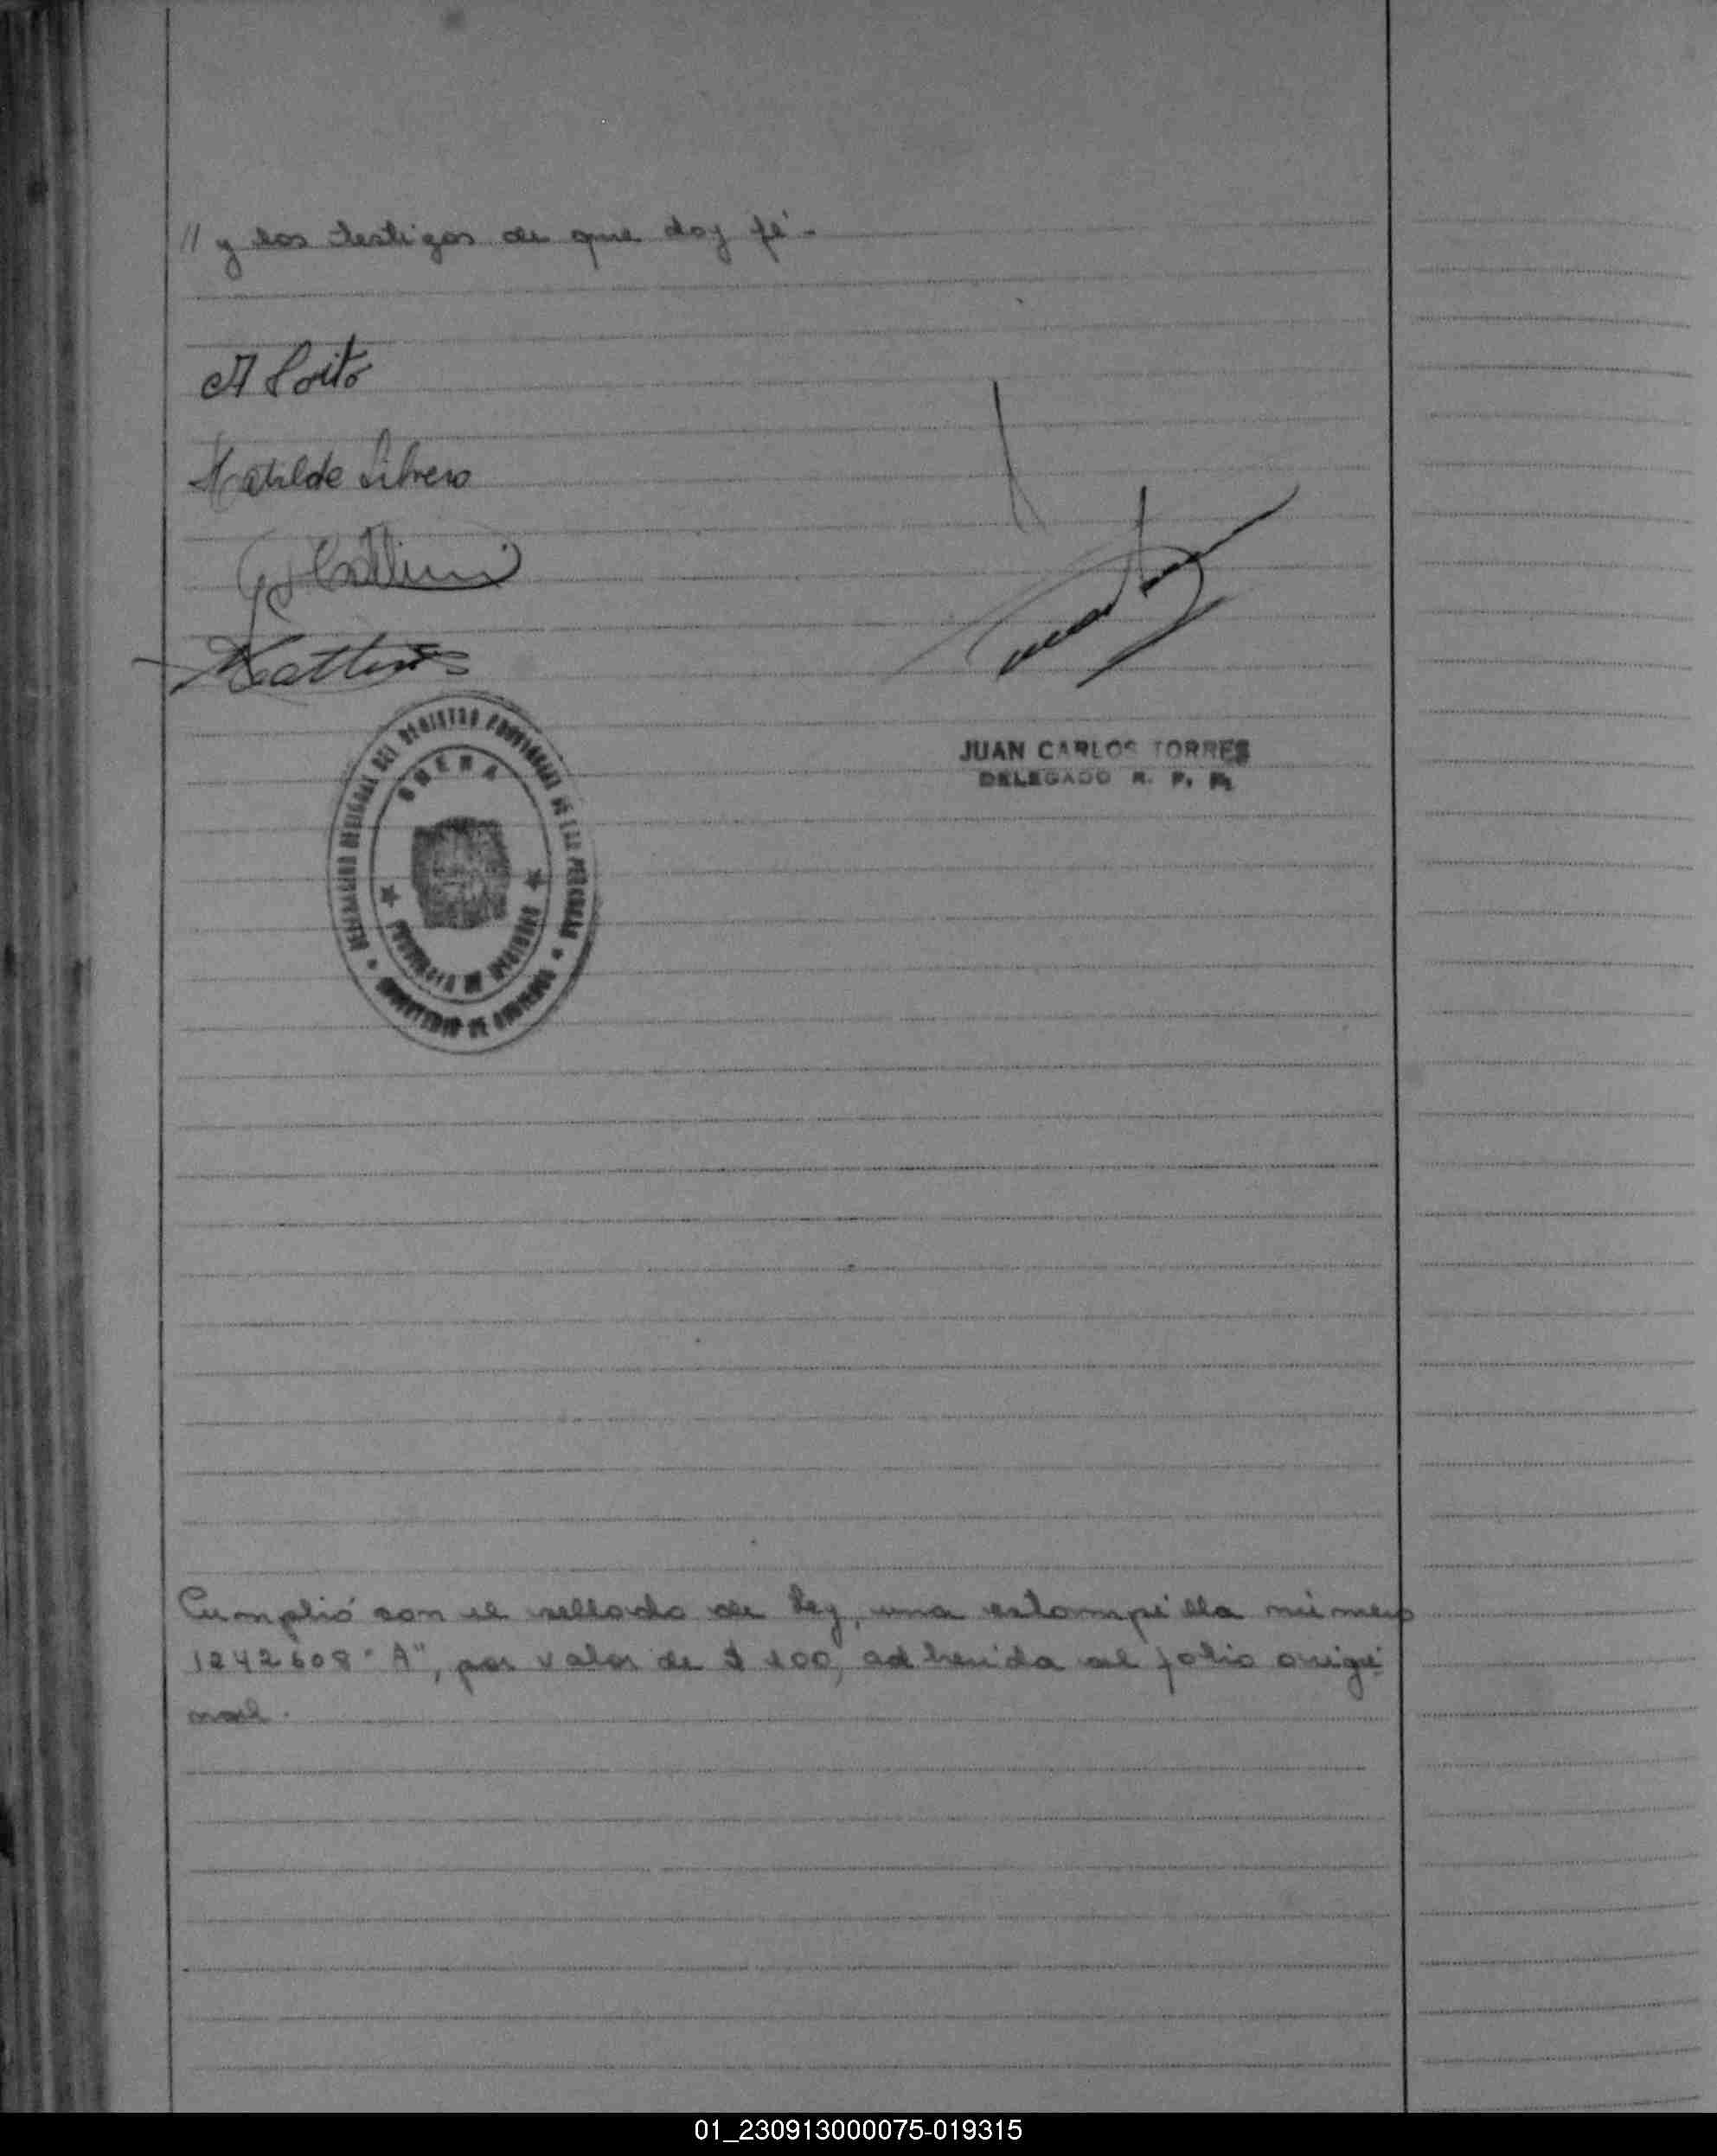 // y los testigos de que doy fé.-
A Loito
Matilde Librero
JUAN CARLOS TORRES
DELEGADO R. P. P.
DEL REGISTRO PROVINCIAL DE LAS PERSONAS
OBERA
PROVINCIA DE MISIONES
MINISTERIO DE GOBIERNO
Cumplió con el sellado de Ley, una estampilla número
1242608 "A", por valor de $ 100, adherida al folio origi-
nal.
01_230913000075-019315